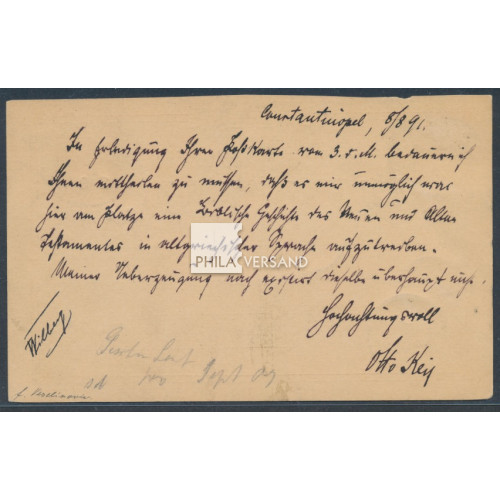 Constantinopel, 8/8 91.
In Erledigung Ihrer Postkarte vom 3. d. M. bedauere ich
Ihnen mittheilen zu müssen, daß es mir unmöglich war
hier am Platze eine Biblische Geschichte des Neuen und Alten
Testamentes in altgriechischer Sprache aufzutreiben.
Meiner Ueberzeugung nach existirt dieselbe überhaupt nicht.
Hochachtungsvoll
Otto Keil
PHILA VERSAND
Sept